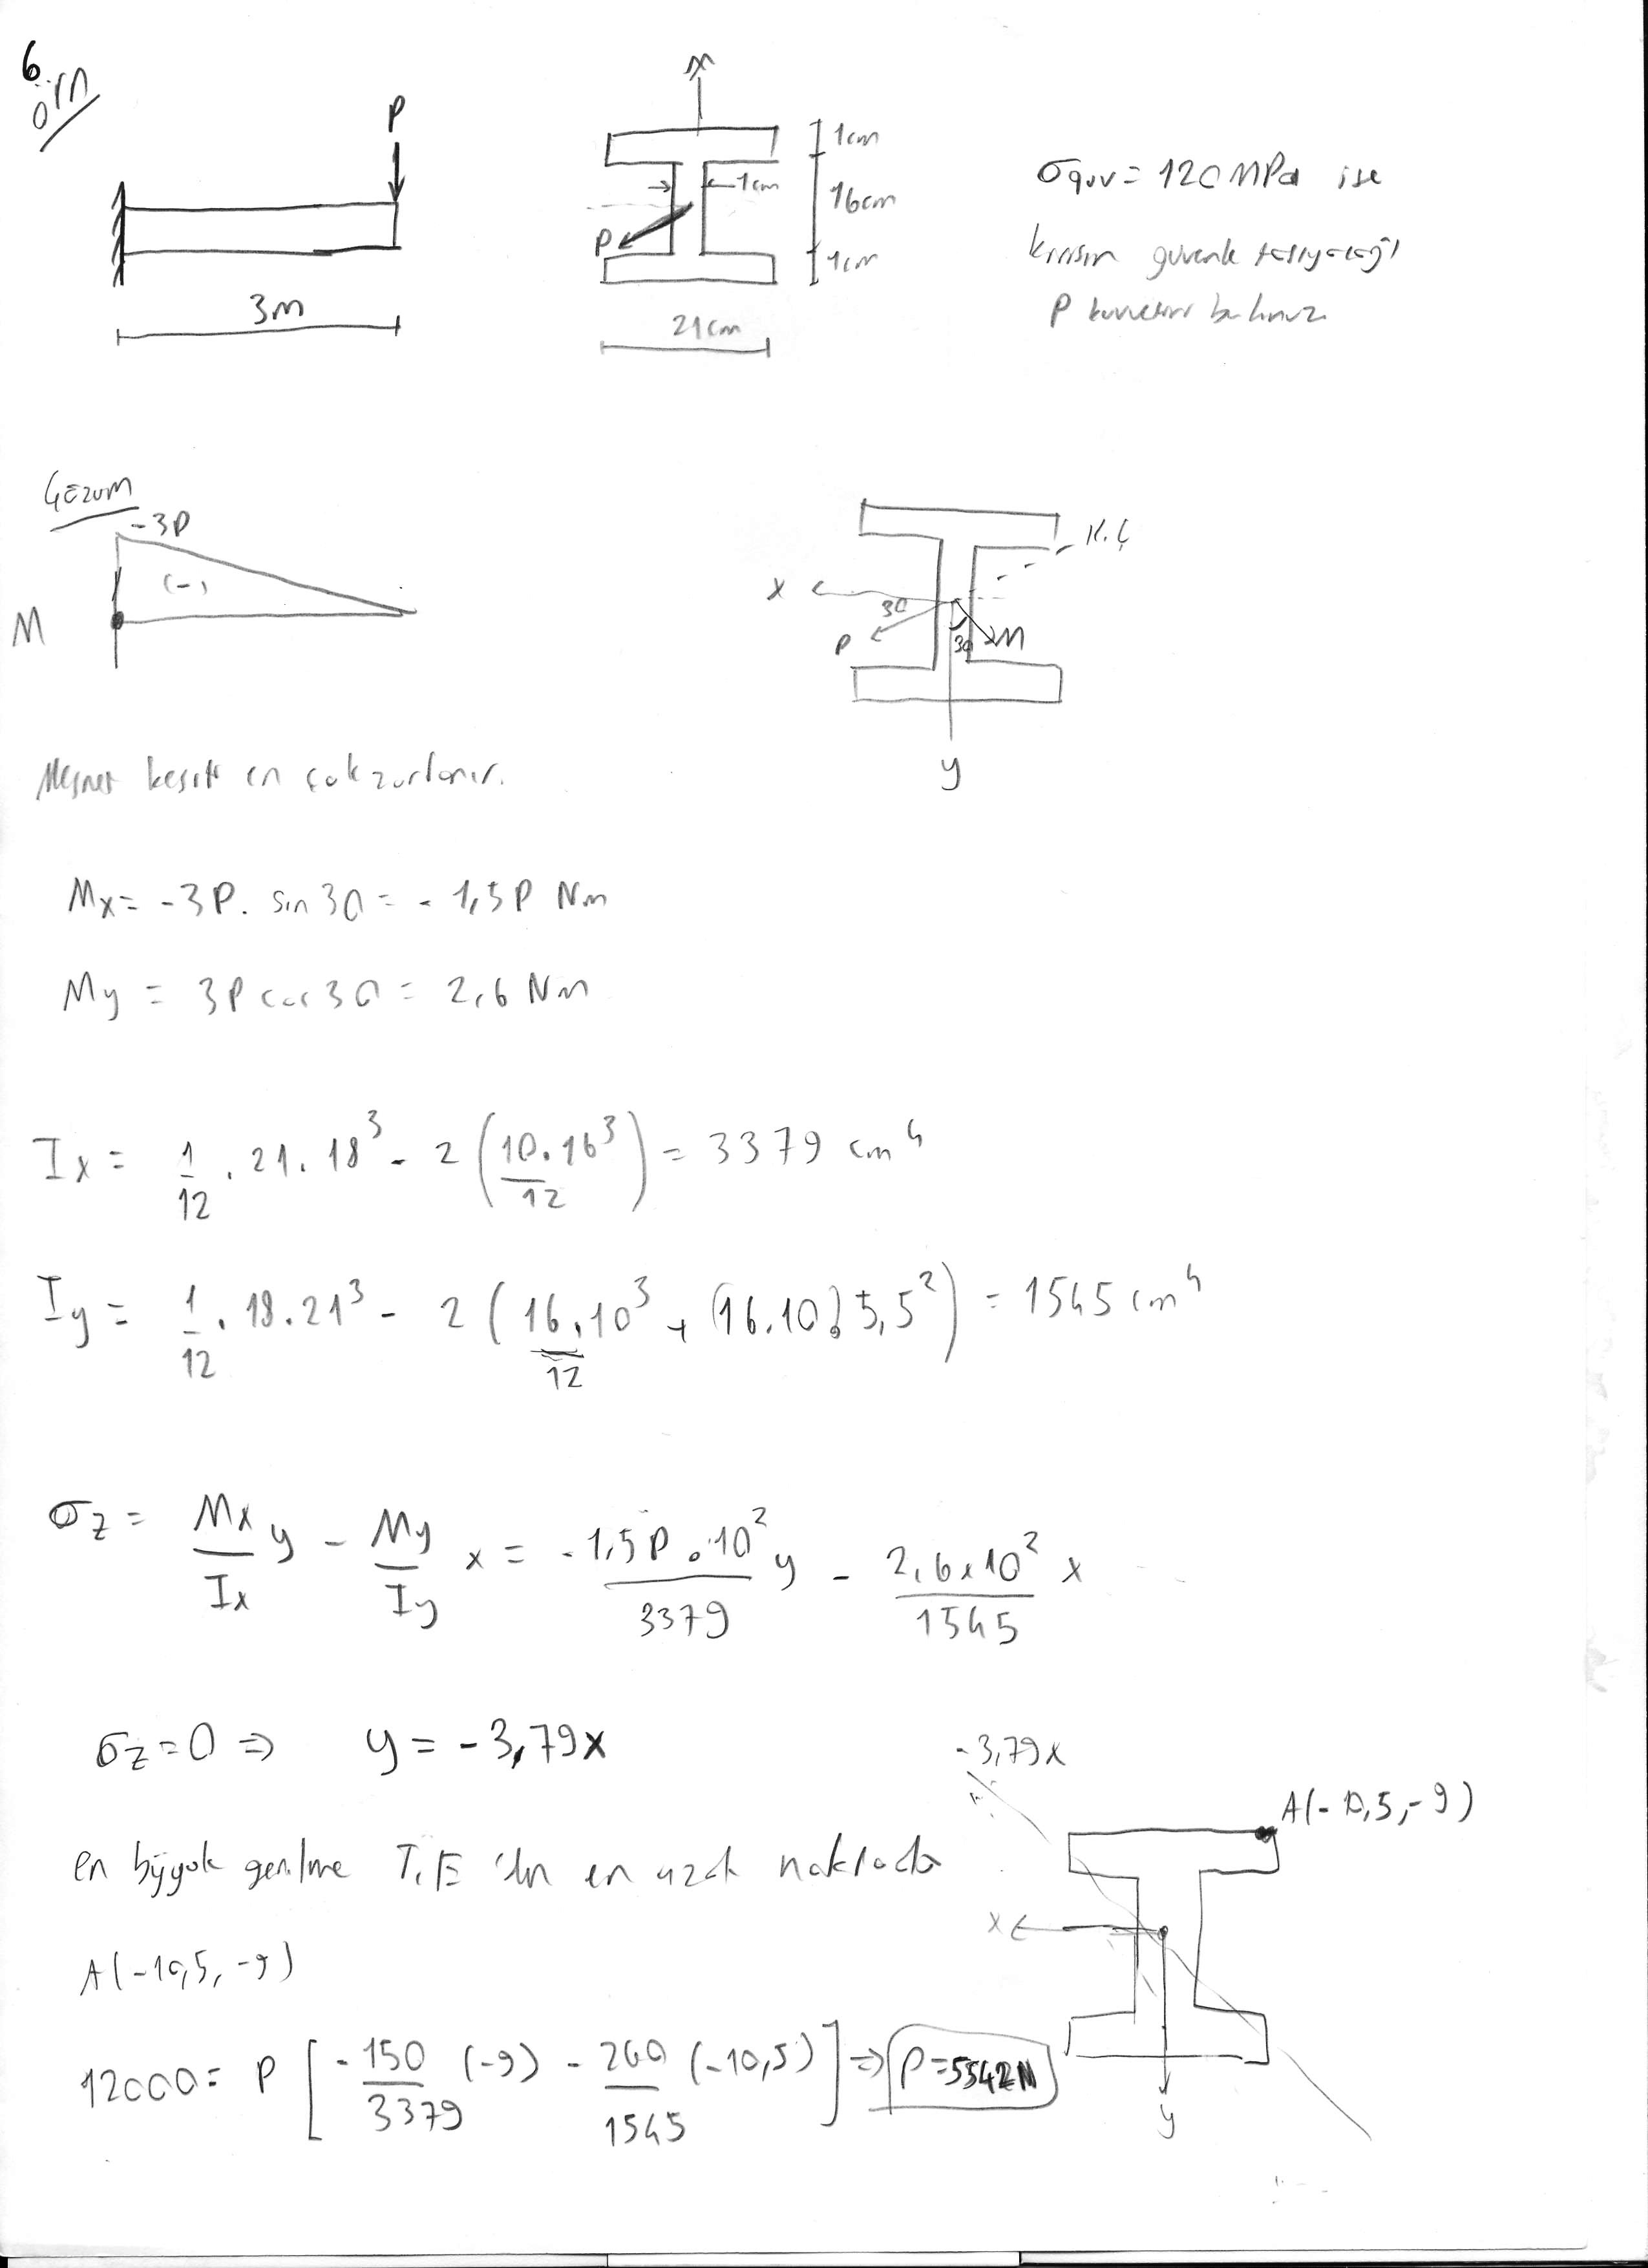 6.
örn
P
3m
x
1cm
1cm
16cm
1cm
P
21cm
σguv = 120 MPa ise
kirişin güvenle taşıyacağı
P kuvvetini bulunuz
Çözüm
-3P
(-)
M
K.Ç
x
30
P
30
M
y
Mesnet kesiti en çok zorlanır.
Mx = -3P. sin30 = - 1,5P Nm
My = 3P cos30 = 2,6 Nm
Ix = 1/12 . 21. 18³ - 2 (10.16³/12) = 3379 cm⁴
Iy = 1/12 . 18. 21³ - 2 (16.10³/12 + (16.10) 5,5²) = 1545 cm⁴
σz = Mx/Ix y - My/Iy x = -1,5P.10²/3379 y - 2,6x10²/1545 x
σz = 0 ⇒ y = -3,79x
-3,79x
A(-10,5,-9)
en büyük gerilme T.E 'den en uzak noktada
x
A(-10,5,-9)
12000 = P [-150/3379 (-9) - 260/1545 (-10,5)] ⇒ P=5542N
y